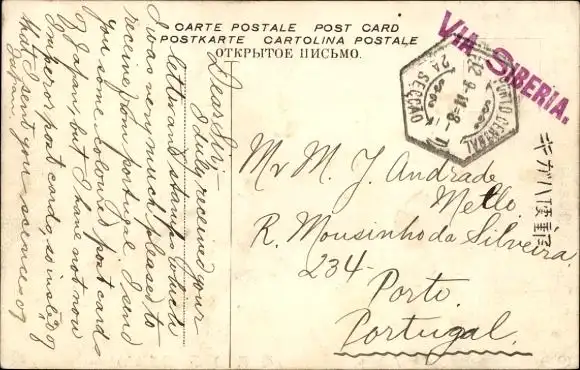 CARTE POSTALE POST CARD
POSTKARTE CARTOLINA POSTALE
ОТКРЫТОЕ ПИСЬМО.
VIA SIBERIA.
PORTO CENTRAL
2A SECÇÃO
Dear Sir;-
I duly received your
letter and stamps which
I was very much pleased to
receive from portugal. I send
you some coloured post cards
of Japan, but I have not now
Imperor post cards, so insted of
that, I sent you scenes of
Japan.
Mr M. J. Andrade
Mello.
R. Mousinho da Silveira
234-
Porto.
Portugal.